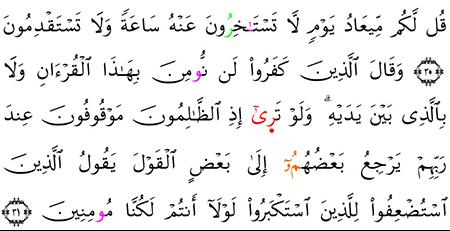 قُل لَّكُم مِّيعَادُ يَوْمٖ لَّا تَسْتَـٰخِرُونَ عَنْهُ سَاعَةٗ وَلَا تَسْتَقْدِمُونَ
٣٠ وَقَالَ ٱلَّذِينَ كَفَرُواْ لَن نُّومِنَ بِهَـٰذَا ٱلْقُرْءَانِ وَلَا
بِٱلَّذِى بَيْنَ يَدَيْهِۗ وَلَوْ تَرٜىٰٓ إِذِ ٱلظَّـٰلِمُونَ مَوْقُوفُونَ عِندَ
رَبِّهِمْ يَرْجِعُ بَعْضُهُمُۥٓ إِلَىٰ بَعْضٍ ٱلْقَوْلَ يَقُولُ ٱلَّذِينَ
ٱسْتُضْعِفُواْ لِلَّذِينَ ٱسْتَكْبَرُواْ لَوْلَآ أَنتُمْ لَكُنَّا مُومِنِينَ ٣١